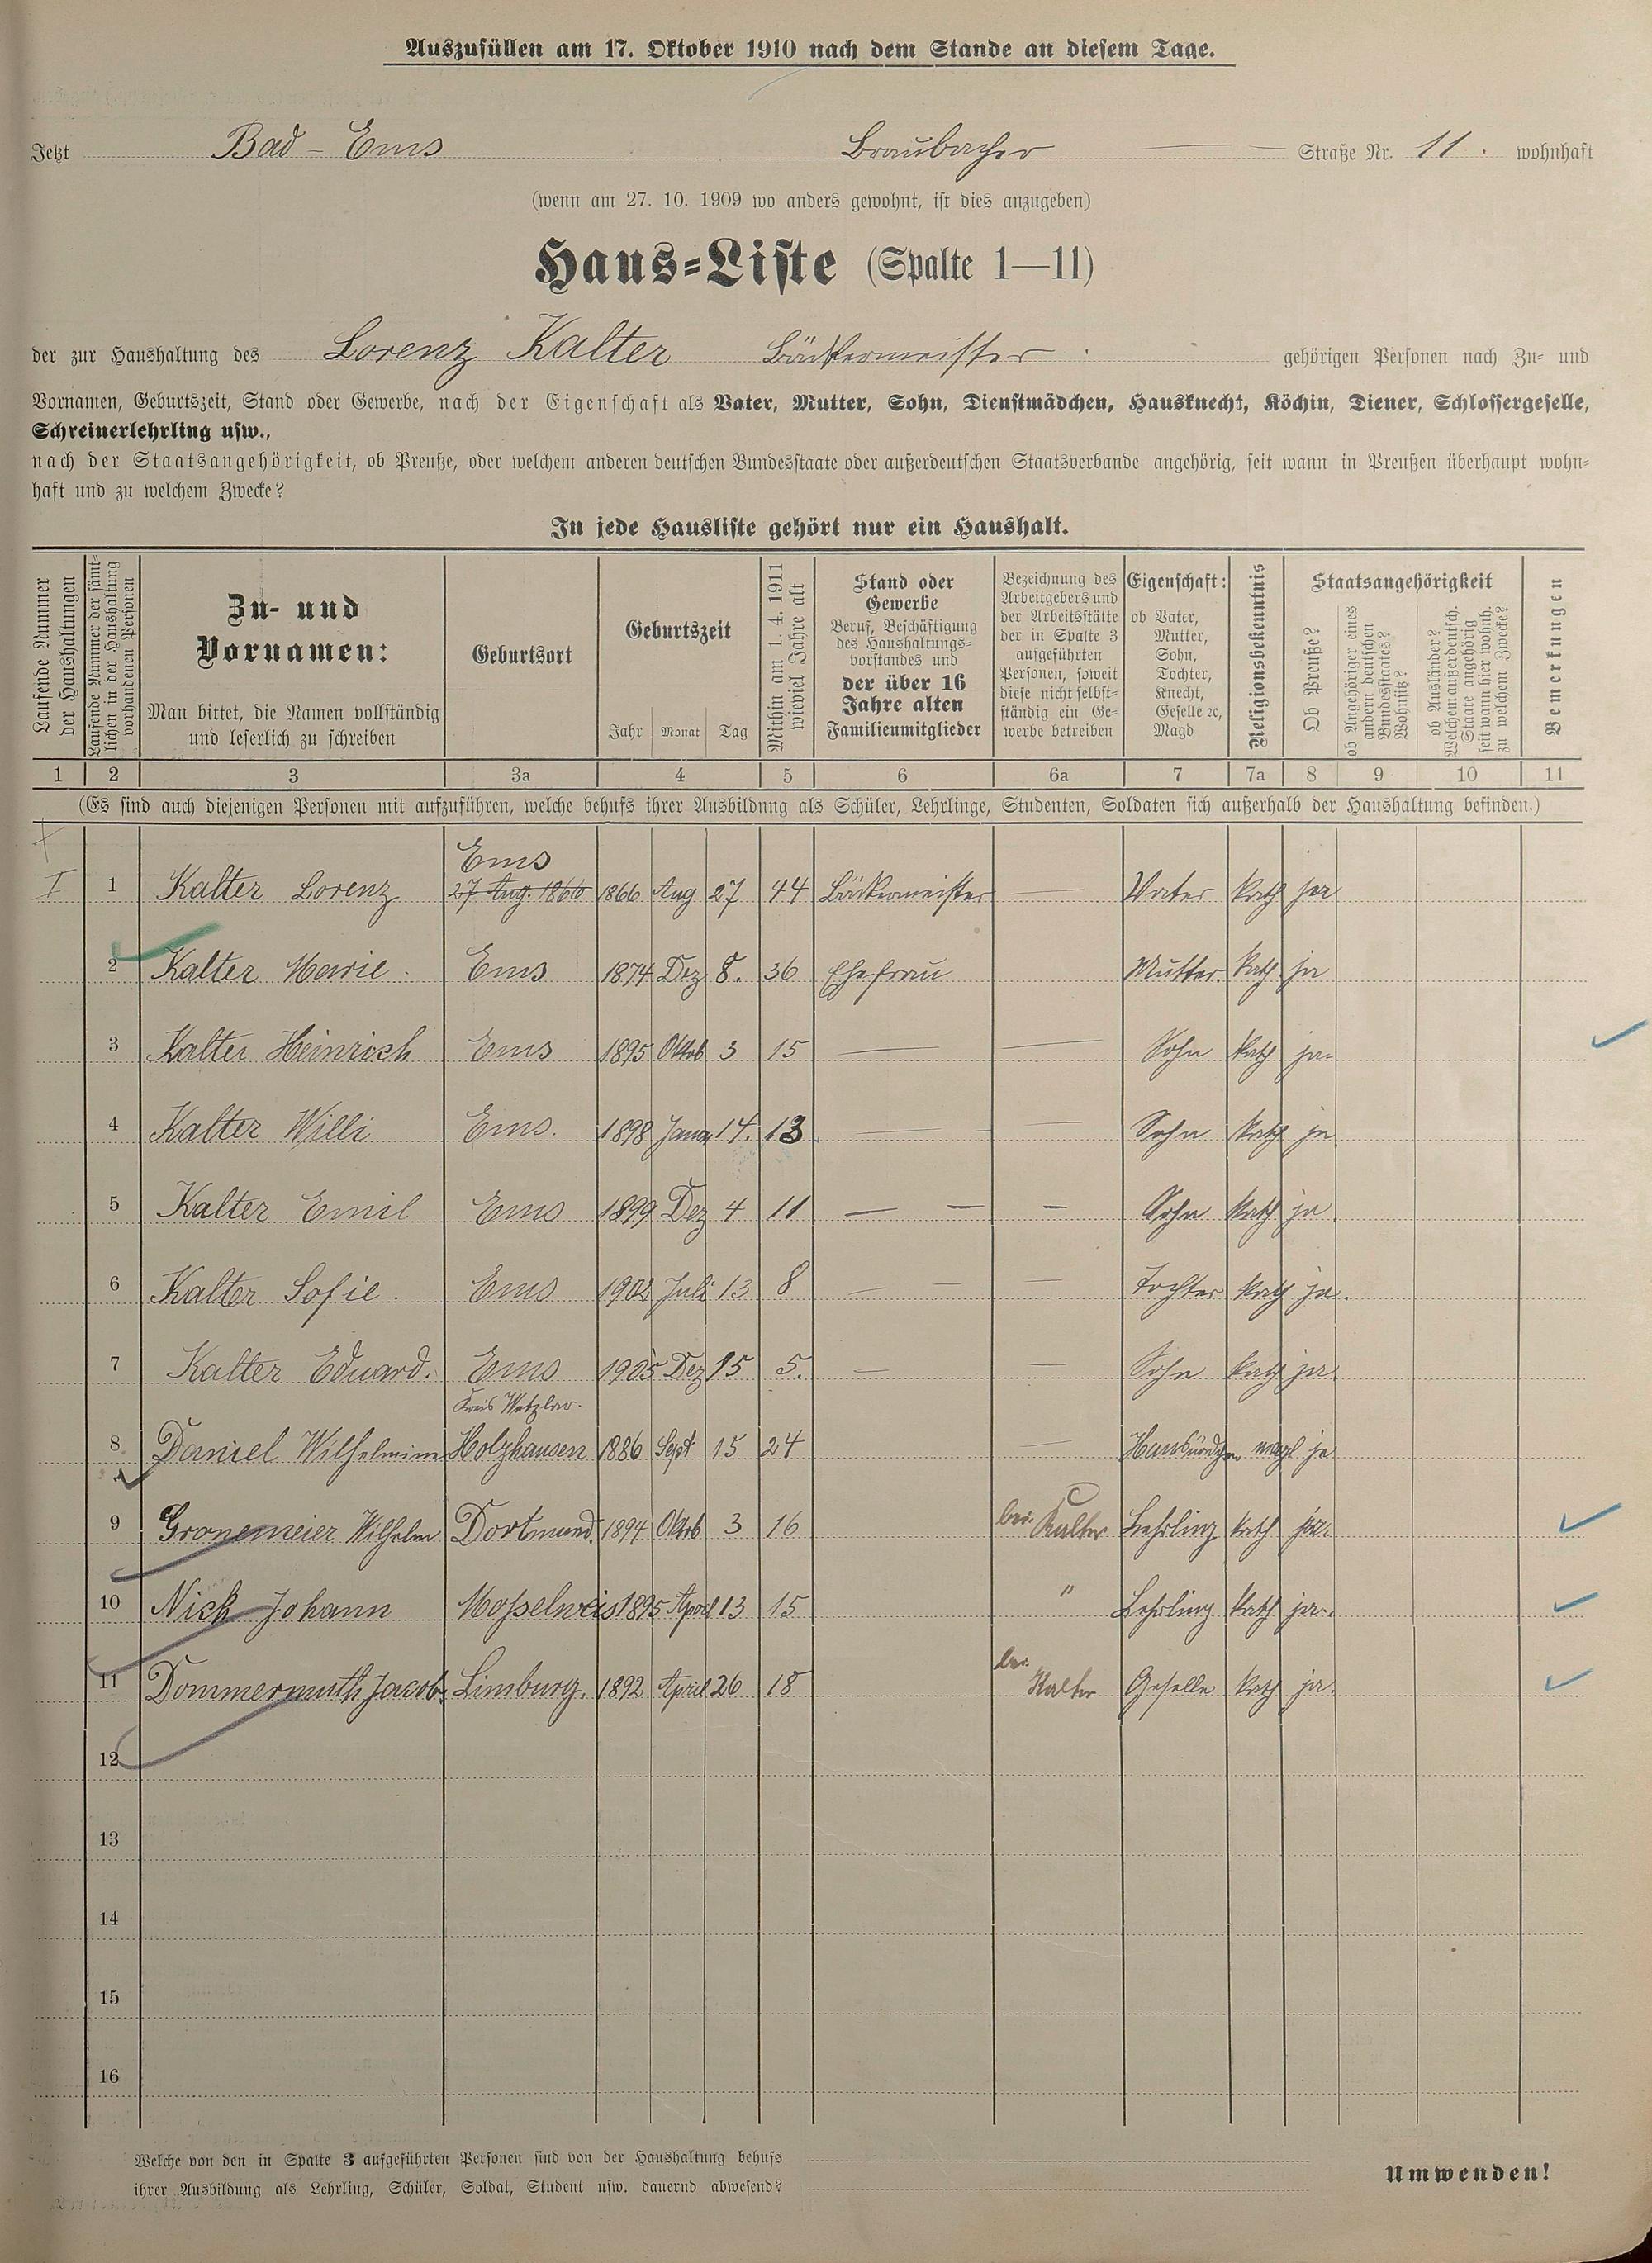 Auszufüllen am 17. Oktober 1910 nach dem Stande an diesem Tage.
Jetzt Bad-Ems Braubacher Straße Nr. 11. wohnhaft
(wenn am 27. 10. 1909 wo anders gewohnt, ist dies anzugeben)
Haus-Liste (Spalte 1—11)
der zur Haushaltung des Lorenz Kalter Bäckermeister gehörigen Personen nach Zu- und
Vornamen, Geburtszeit, Stand oder Gewerbe, nach der Eigenschaft als Vater, Mutter, Sohn, Dienstmädchen, Hausknecht, Köchin, Diener, Schlossergeselle,
Schreinerlehrling usw.,
nach der Staatsangehörigkeit, ob Preuße, oder welchem anderen deutschen Bundesstaate oder außerdeutschen Staatsverbande angehörig, seit wann in Preußen überhaupt wohn-
haft und zu welchem Zwecke?
In jede Hausliste gehört nur ein Haushalt.
Laufende Nummer
der Haushaltungen
Laufende Nummer der sämt-
lichen in der Haushaltung
vorhandenen Personen
Zu- und
Vornamen:
Man bittet, die Namen vollständig
und leserlich zu schreiben
Geburtsort
Geburtszeit
Jahr Monat Tag
Mithin am 1. 4. 1911
wieviel Jahre alt
Stand oder
Gewerbe
Beruf, Beschäftigung
des Haushaltungs-
vorstandes und
der über 16
Jahre alten
Familienmitglieder
Bezeichnung des
Arbeitgebers und
der Arbeitsstätte
der in Spalte 3
aufgeführten
Personen, soweit
diese nicht selbst-
ständig ein Ge-
werbe betreiben
Eigenschaft:
ob Vater,
Mutter,
Sohn,
Tochter,
Knecht,
Geselle ꝛc,
Magd
Religionsbekenntnis
Staatsangehörigkeit
Ob Preuße?
ob Angehöriger eines
andern deutschen
Bundesstaates?
Wohnsitz?
ob Ausländer?
Welchem außerdeutsch.
Staate angehörig
seit wann hier wohnh.
zu welchem Zwecke?
Bemerkungen
1 2 3 3a 4 5 6 6a 7 7a 8 9 10 11
(Es sind auch diejenigen Personen mit aufzuführen, welche behufs ihrer Ausbildung als Schüler, Lehrlinge, Studenten, Soldaten sich außerhalb der Haushaltung befinden.)
Ems
I 1 Kalter Lorenz 27 Aug. 1866 1866 Aug 27 44 Bäckermeister — Vater kath ja
2 Kalter Marie. Ems 1874 Dez 8. 36 Ehefrau Mutter. kath ja
3 Kalter Heinrich Ems 1895 Oktob 3 15 — — Sohn kath ja.
4 Kalter Willi Ems. 1898 Janu 14. 13 — — Sohn kath ja
5 Kalter Emil Ems 1899 Dez 4 11 — — — Sohn kath ja.
6 Kalter Sofie. Ems 1902 Juli 13 8 — — — Tochter kath ja.
7 Kalter Eduard. Ems 1905 Dez 15 5. — — Sohn kath ja.
Kreis Wetzlar.
8 Daniel Wilhelmine Holzhausen 1886 Sept 15 24 — ja
9 Gronemeier Wilhelm Dortmund. 1894 Oktob 3 16 bei Kalter Lehrling kath ja.
10 Nick Johann Mosselweis 1895 April 13 15 " Lehrling kath ja.
11 Dommermuth Jacob. Limburg. 1892 April 26 18 bei Kalter Geselle kath ja.
12
13
14
15
16
Welche von den in Spalte 3 aufgeführten Personen sind von der Haushaltung behufs
ihrer Ausbildung als Lehrling, Schüler, Soldat, Student usw. dauernd abwesend?
Umwenden!